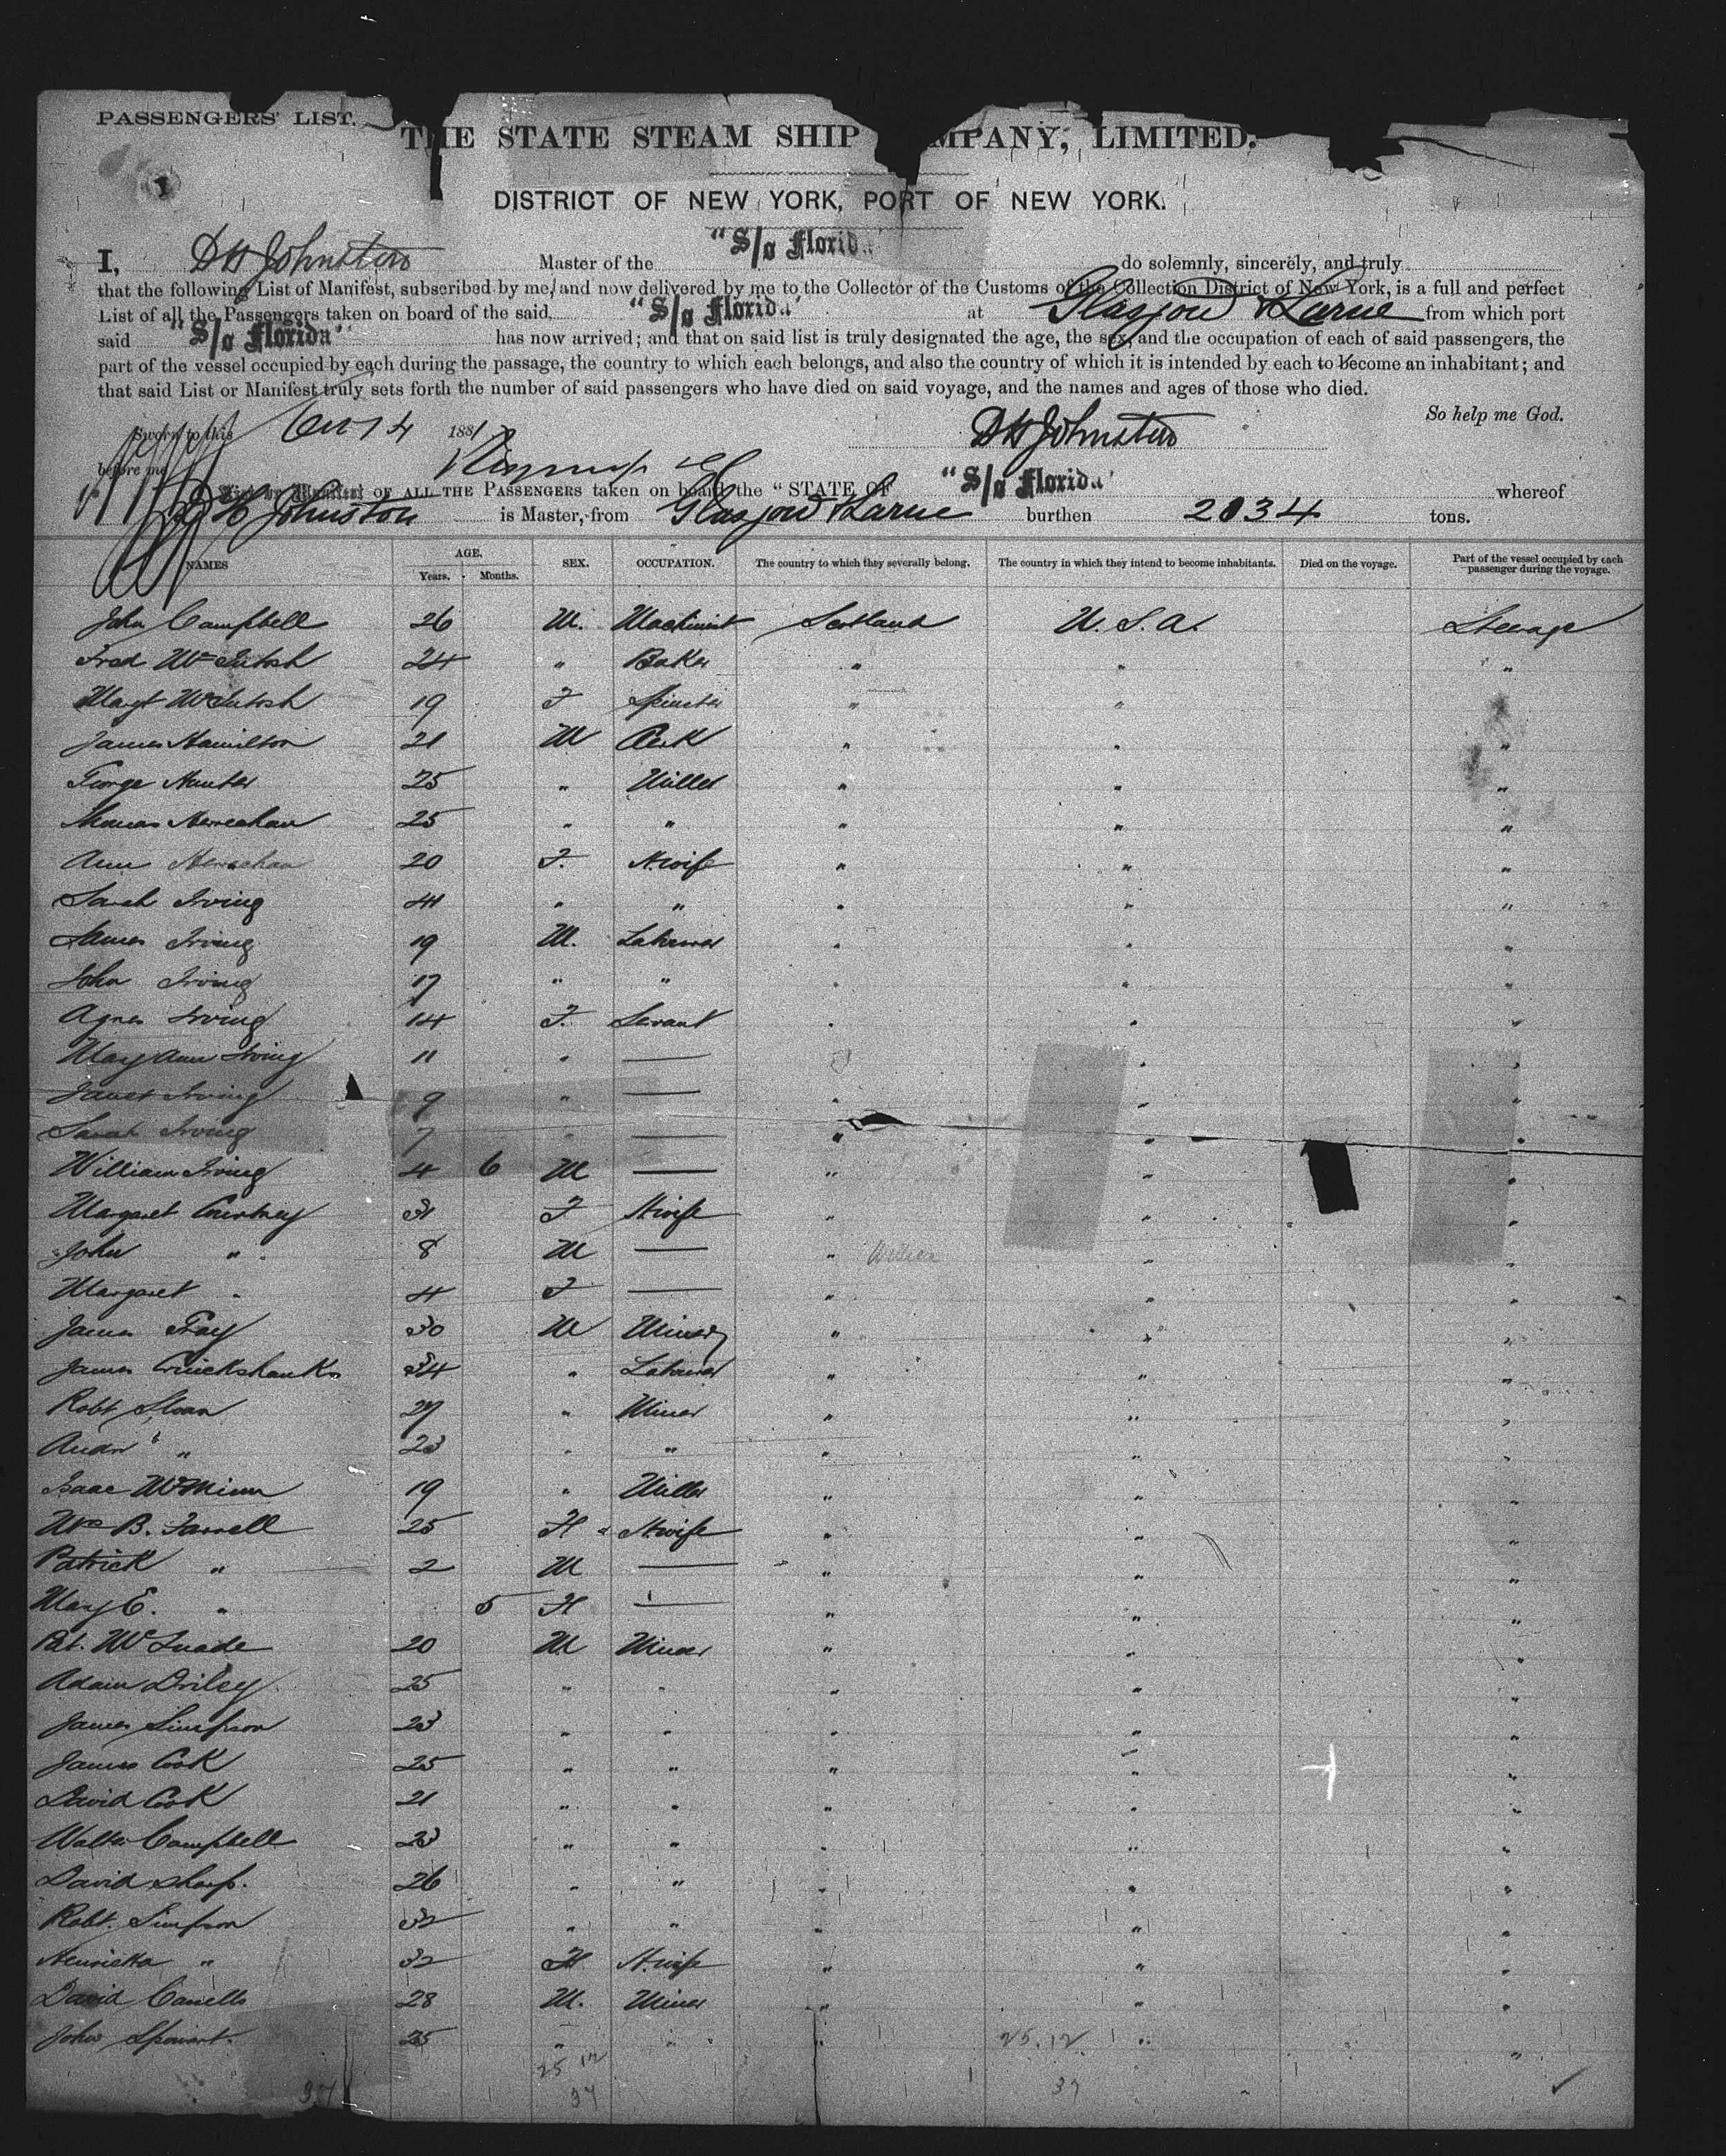 PASSENGERS' LIST.
THE STATE STEAM SHIP MPANY, LIMITED.
DISTRICT OF NEW YORK, PORT OF NEW YORK.
I, D H Johnston Master of the "S/o Florida" do solemnly, sincerely, and truly
that the following List of Manifest, subscribed by me, and now delivered by me to the Collector of the Customs of the Collection District of New York, is a full and perfect
List of all the Passengers taken on board of the said, "S/o Florida" at Glasgow & Larne from which port
said "S/o Florida" has now arrived; and that on said list is truly designated the age, the sex, and the occupation of each of said passengers, the
part of the vessel occupied by each during the passage, the country to which each belongs, and also the country of which it is intended by each to become an inhabitant; and
that said List or Manifest truly sets forth the number of said passengers who have died on said voyage, and the names and ages of those who died.
So help me God.
Sworn to this Oct 14 1881 D H Johnston
before me
List or Manifest OF ALL THE PASSENGERS taken on board the "STATE OF "S/o Florida" whereof
D H Johnston is Master, from Glasgow & Larne burthen 2034 tons.
NAMES AGE. Years. Months. SEX. OCCUPATION. The country to which they severally belong. The country in which they intend to become inhabitants. Died on the voyage. Part of the vessel occupied by each passenger during the voyage.
John Campbell 26 M. Machinist Scotland U. S. A. Steerage
Fred McIntosh 24 " Baker " " "
Margt McIntosh 19 F Spinster " " "
James Hamilton 21 M Clerk " " "
George Hunter 25 " Miller " " "
Thomas 25 " " " " "
Ann 20 F. H.wife " " "
Sarah Irving 41 " " " " "
James Irving 19 M. Labourer " " "
John Irving 17 " " " " "
Agnes Irving 14 F. Servant " " "
Mary Ann Irving 11 " — " "
Janet Irving 9 " — " "
Sarah Irving 7 " — " " "
William Irving 4 6 M — " " "
Margaret Courtney 31 F H.wife " " "
John " 8 M — " " "
Margaret " 4 F — " " "
James Gray 30 M Miner " " "
James Cruickshanks 34 " Labourer " " "
Robt Sloan 27 " Miner " " "
Andw " 23 " " " " "
Isaac McMinn 19 " Miller " " "
Mrs B. Farrell 25 F H.wife " " "
Patrick " 2 M — " " "
Mary E. " 5 F — " " "
Pat. McQuade 20 M Miner " " "
Adam 25 " " " " "
James Simpson 23 " " " " "
James Cook 25 " " " " "
David Cook 21 " " " " "
Walter Campbell 23 " " " " "
David Sharp. 26 " " " " "
Robt. Simpson 32 " " " " "
Henrietta " 32 F H.wife " " "
David 28 M. Miner " " "
John 25 " " " 25.12 " "
37 25 12 37 37